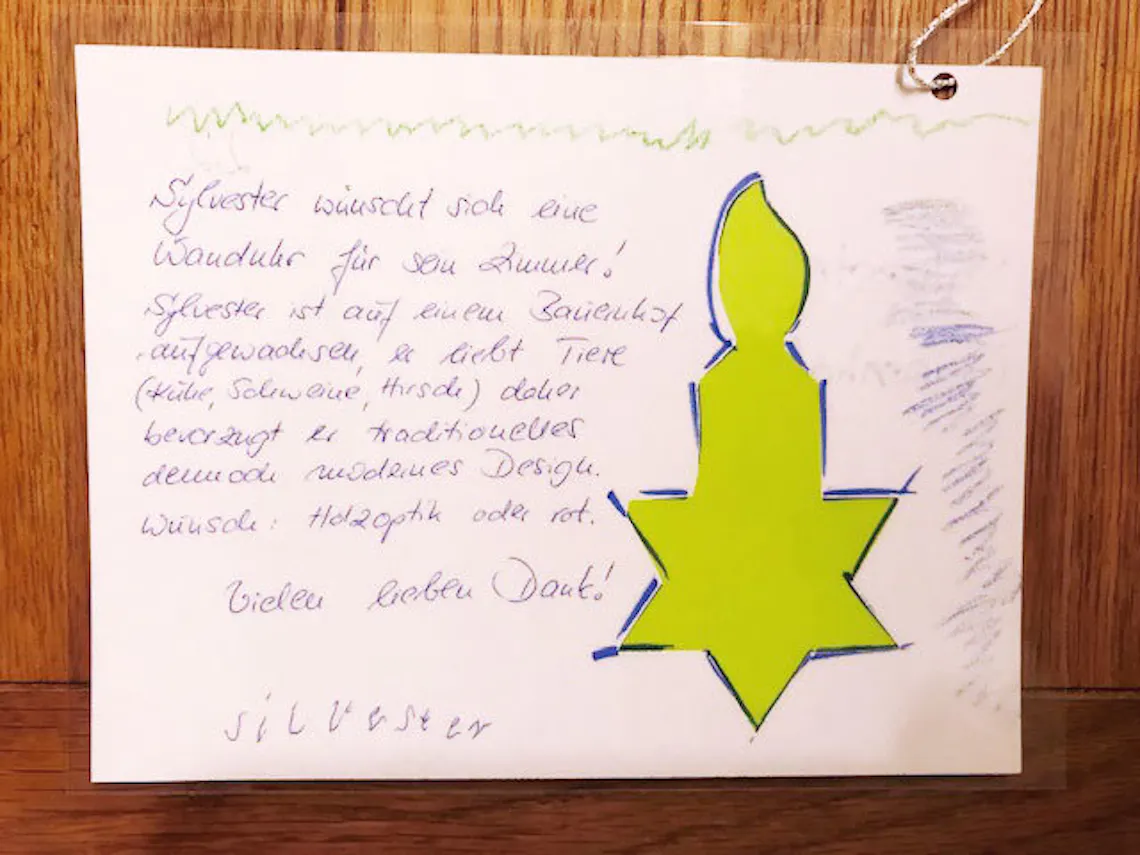 Sylvester wünscht sich eine
Wanduhr für sein Zimmer!
Sylvester ist auf einem Bauernhof
aufgewachsen, er liebt Tiere
(Kühe, Schweine, Hirsch) daher
bevorzugt er traditionelles
dennoch modernes Design.
Wunsch: Holzoptik oder rot.
Vielen lieben Dank!
silvester